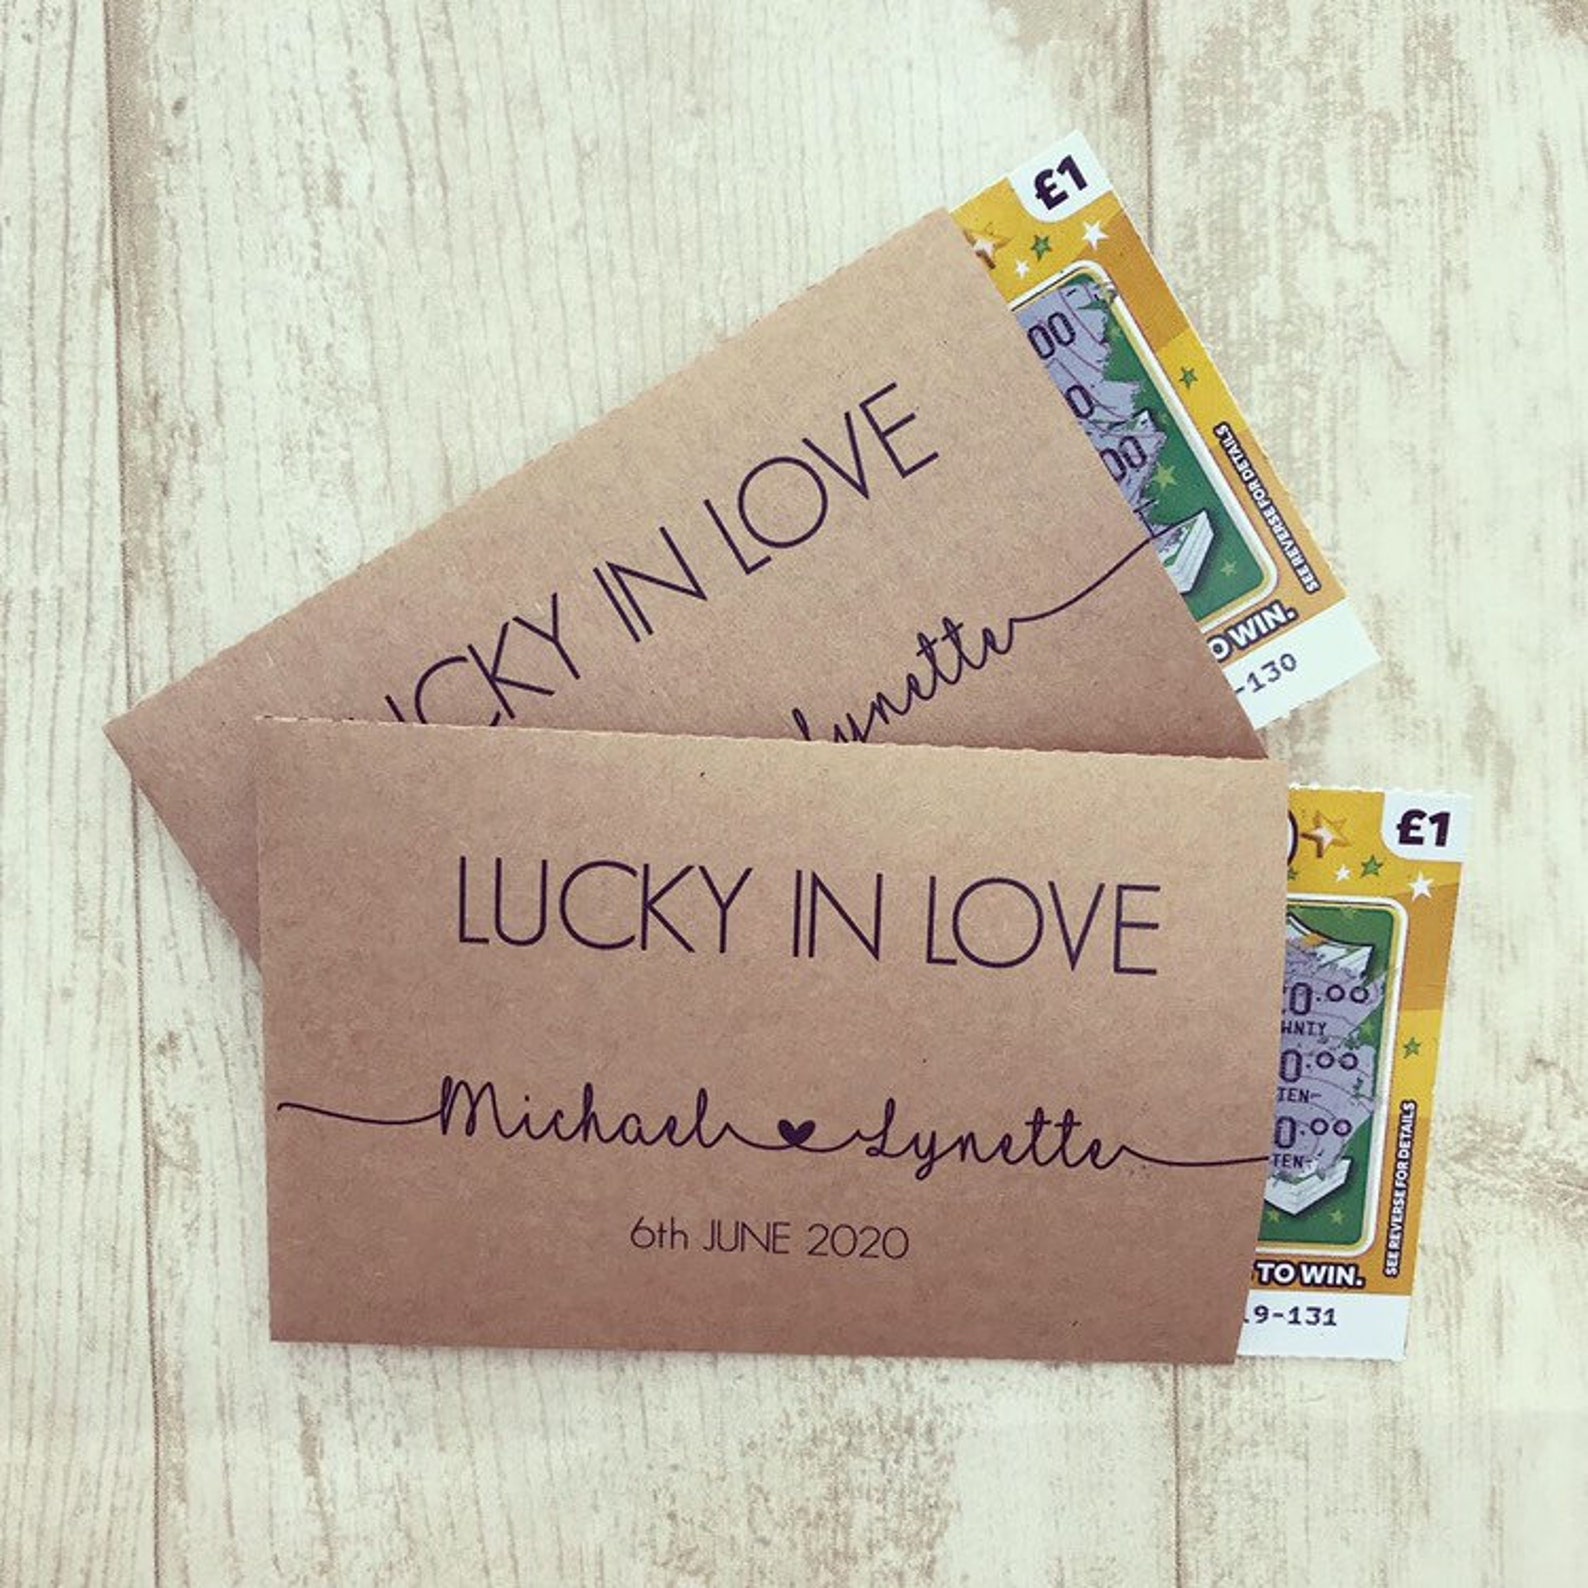 £1
00
0
00
SEE REVERSE FOR DETAILS
O WIN.
-130
UCKY IN LOVE
Lynette
£1
LUCKY IN LOVE
Michael Lynette
6th JUNE 2020
0.00
0.00
0.00
SEE REVERSE FOR DETAILS
TO WIN.
9-131